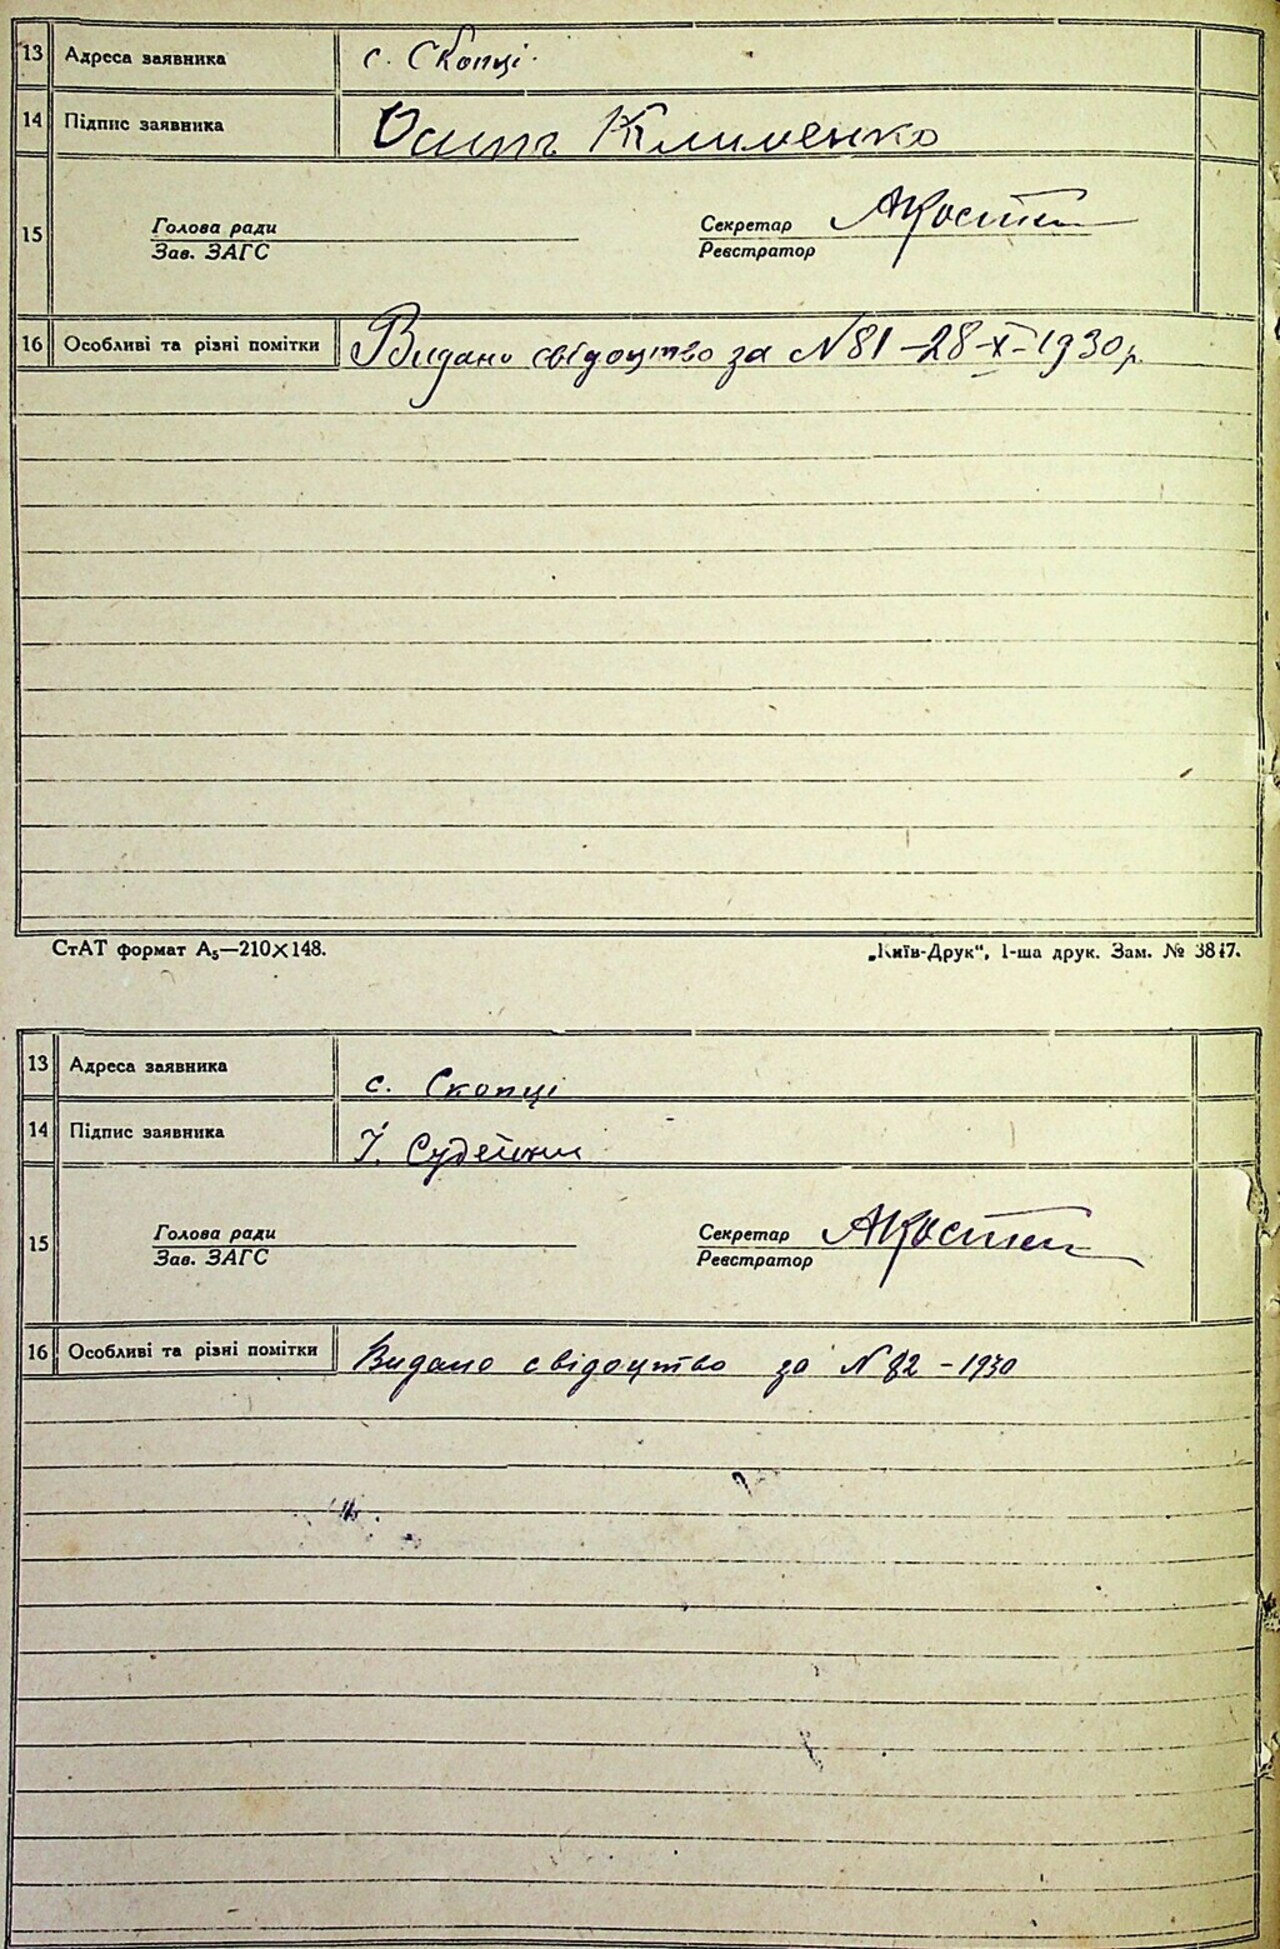 13 Адреса заявника с. Скопці.
14 Підпис заявника Осипъ Клименко
15 Голова ради Секретар
Зав. ЗАГС Реєстратор
16 Особливі та різні помітки Видано свідоцтво за N 81 – 28 – X – 1930 р.
СтАТ формат А₅—210×148. „Київ-Друк“, 1-ша друк. Зам. № 3847.
13 Адреса заявника с. Скопці
14 Підпис заявника І.
15 Голова ради Секретар
Зав. ЗАГС Реєстратор
16 Особливі та різні помітки Видано свідоцтво за N 82 – 1930